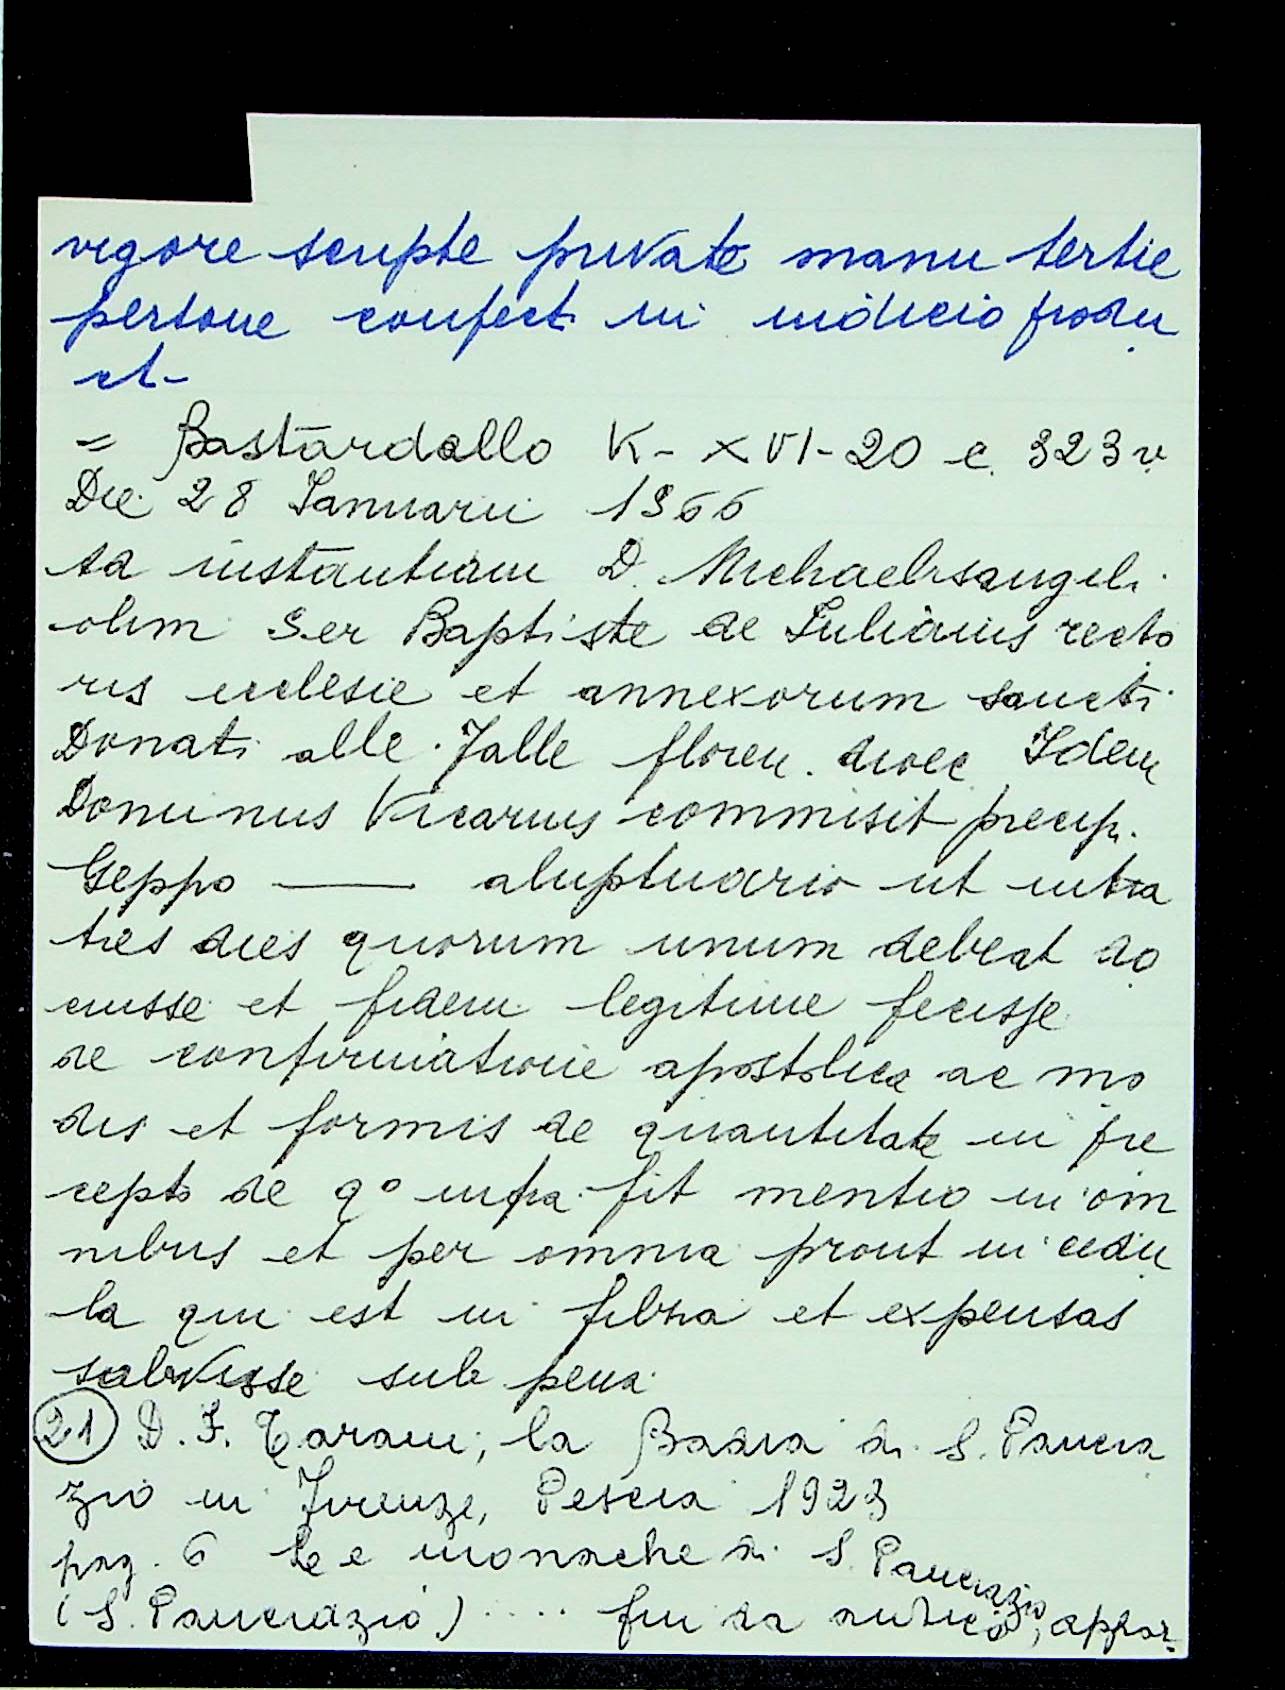 vigore scripte private manu tertie
persone confect. in iudicio produ
ct-
= Bastardello K - XVI - 20 c. 323 v.
Die 28 Ianuarii 1566
ad instantiam D. Michaelisangeli
olim Ser Baptiste de Iulianis recto
ris ecclesie et annexorum sancti
Donati alle Falle floren. dioec Idem
Dominus Vicarius commisit precip.
Geppo —— ut intra
tres dies quorum unum debeat do
cuisse et fidem legitime fecisse
de confirmatione apostolica ac mo
dis et formis de quantitate in pre
cepto de qo infra fit mentio in om
nibus et per omnia prout in cedu
la que est in filza et expensas
solvisse sub pena
(21) D. F. Tarani; la Badia di S. Pancra
zio in Firenze, Pescia 1923
pag. 6 Le monache di S. Pancrazio
(S. Pancrazio) .... fin da antico, appar.